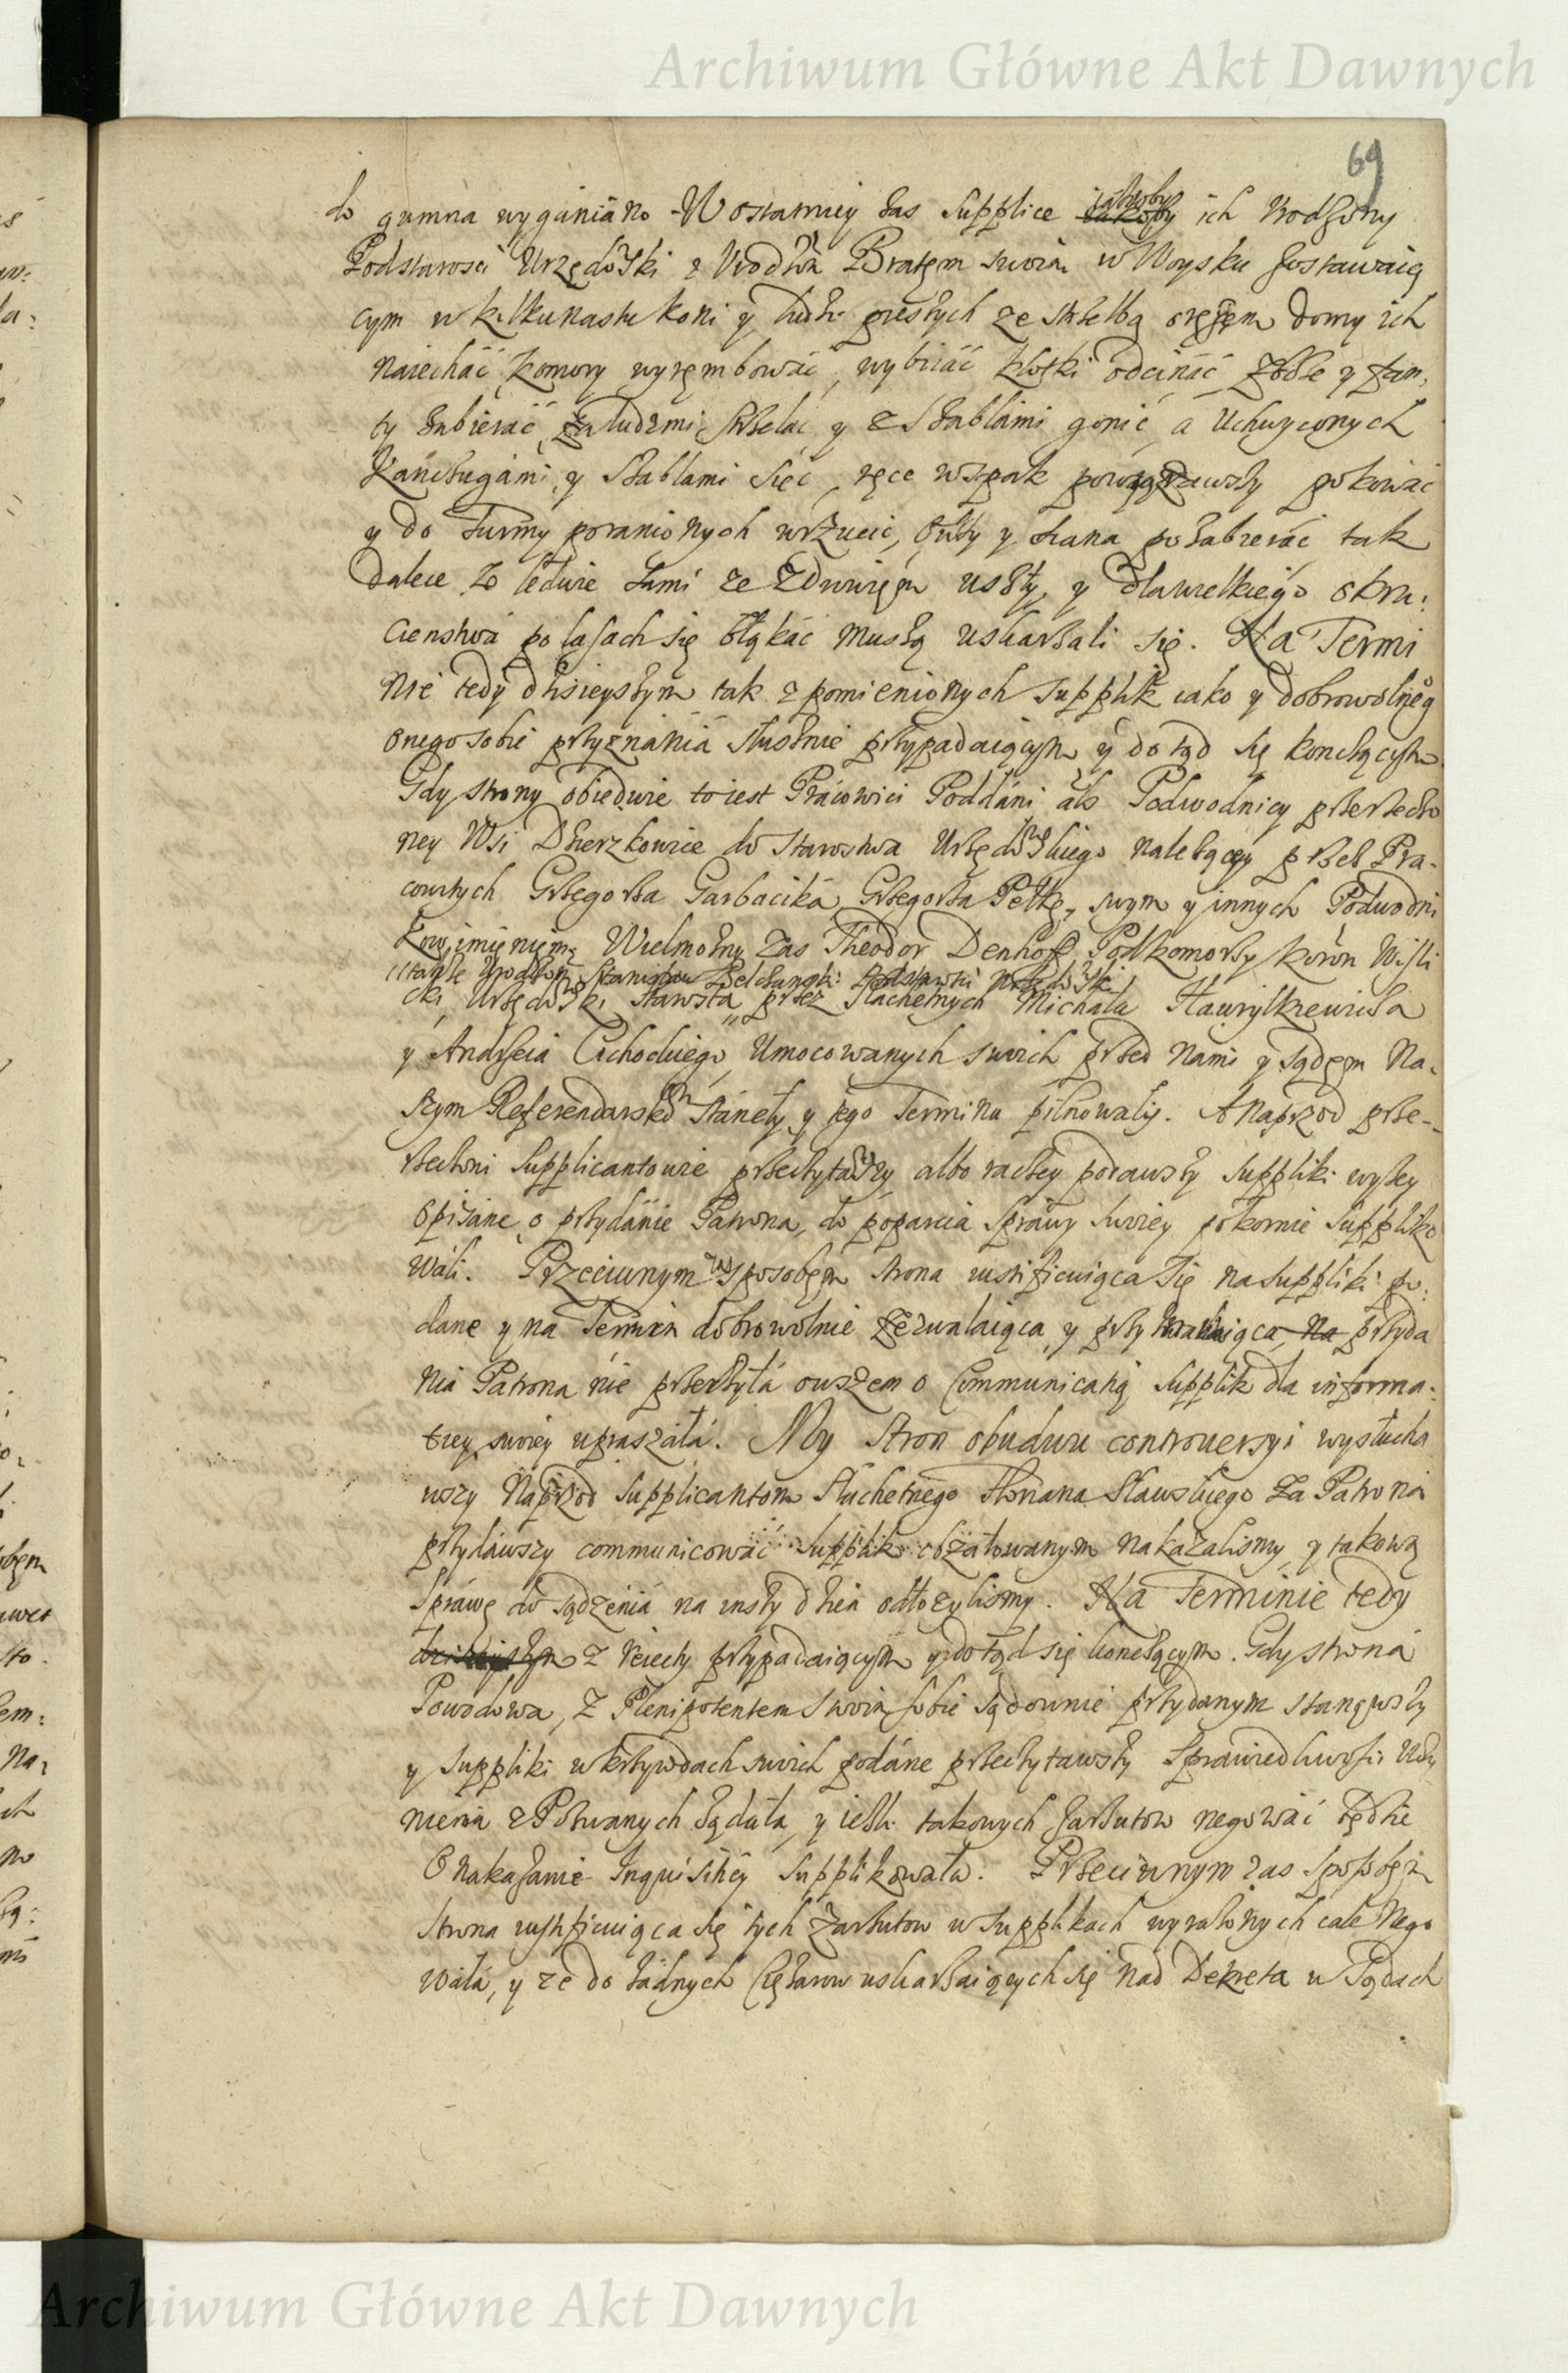 Archiwum Główne Akt Dawnych
69
do gumna wyganiano. W ostatniey zas supplice iakoby ich Urodzony
Podstarosci Urzędowski z Urodzm Bratem swoim w Woysku zostawaią
cym w kilkunastu koni y ludzi pieszych ze strzelbą orężem domy ich
naiechać, komory wyrembować, wybiiać klotki odcinać zboże y fan,
ty zabierać, za ludzmi strzelać y z szablami gonić, a uchwyconych
Kanczugami, y szablami sieć, ręce wspak powiązawszy pokować
y do Turmy poranionych wrzucić, y siana pozabierać tak
dalece ze ledwie sami ze zdrowiem uszły, y dla wielkiego okru:
cienstwa po lasach się błąkać muszą uskarżali się. Na Termi
nie tedy dzisieyszym tak z pomienionych supplik iako y dobrowolneg
onego sobie przyznania słusznie przypadaiącym y dotąd się konczącym
Gdy strony obiedwie to iest Pracowici Poddani als Podwodnicy przerzeczo
ney Wsi Dzierzkowice do Starostwa Urzędowskiego należącey przez Pra-
cowitych Grzegorza Garbacika, Grzegorza Pełkę, swym y innych Podwodni
kow imieniem; Wielmożny zas Theodor Denhoff Podkomorzy Koron Wisli
itakże Urodzony Stanisław Podstarosci Urzędowski
cki, Urzędowski Starosta, przez Slachetnych Michała Hawryłkiewicza
y Andrzeia Cichockiego, Umocowanych swoich przed Nami y sądem Na-
szym Referendarskim stanęły y tego Terminu pilnowały. A naprzod prze-
rzeczoni supplicantowie przeczytawszy albo raczey podawszy suppliki wyżey
opisane, o przydanie Patrona, do poparcia sprawy swoiey pokornie suppliko
wali. Przeciwnym zas sposobem strona iustificuiąca się na suppliki po:
dane y na Termin dobrowolnie zezwalaiąca, y przyznawaiąca, na przyda
nia Patrona nie przeczyła owszem o Communicatią supplik dla informa:
tiey swoiey upraszała. My stron obudwu controversyi wysłucha
wszy Naprzod supplicantom Slachetnego Floriana Sławskiego za Patrona
przydawszy communicować suppliki obżałowanym nakazalismy, y takową
sprawę do sądzenia na inszy dzien odłożylismy. Na Terminie tedy
dzisieyszym z rzeczy przypadaiącym y dotąd się konczącym. Gdy strona
Powodowa, z Plenipotentem swoim sobie sądownie przydanym stanąwszy
y suppliki w krzywdach swoich podane przeczytawszy sprawiedliwosci Uczy
nienia z Pozwanych żądała, y iesli takowych zarzutow negować będzie
O nakazanie Inquisitiey supplikowała. Przeciwnym zas sposobem
strona iustificuiąca się tych zarzutow w supplikach wyrażonych cale nego
wała, y że do żadnych Ciężarow uskarżaiących się nad Dekreta w Sądach
Archiwum Główne Akt Dawnych